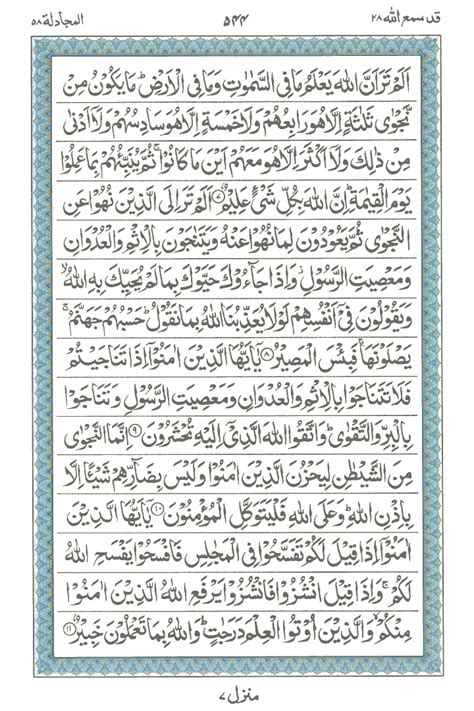 قد سمع الله ٢٨
٥٤٤
المجادلة ٥٨
اَلَمْ تَرَ اَنَّ اللّٰهَ يَعْلَمُ مَا فِي السَّمٰوٰتِ وَمَا فِي الْاَرْضِ ؕ مَا يَكُوْنُ مِنْ
نَّجْوٰى ثَلٰثَةٍ اِلَّا هُوَ رَابِعُهُمْ وَلَا خَمْسَةٍ اِلَّا هُوَ سَادِسُهُمْ وَلَاۤ اَدْنٰى
مِنْ ذٰلِكَ وَلَاۤ اَكْثَرَ اِلَّا هُوَ مَعَهُمْ اَيْنَ مَا كَانُوْا ۚ ثُمَّ يُنَبِّئُهُمْ بِمَا عَمِلُوْا
يَوْمَ الْقِيٰمَةِ ؕ اِنَّ اللّٰهَ بِكُلِّ شَىْءٍ عَلِيْمٌ ۝٧ اَلَمْ تَرَ اِلَى الَّذِيْنَ نُهُوْا عَنِ
النَّجْوٰى ثُمَّ يَعُوْدُوْنَ لِمَا نُهُوْا عَنْهُ وَيَتَنٰجَوْنَ بِالْاِثْمِ وَالْعُدْوَانِ
وَمَعْصِيَتِ الرَّسُوْلِ ؗ وَاِذَا جَآءُوْكَ حَيَّوْكَ بِمَا لَمْ يُحَيِّكَ بِهِ اللّٰهُ ۙ
وَيَقُوْلُوْنَ فِيْۤ اَنْفُسِهِمْ لَوْلَا يُعَذِّبُنَا اللّٰهُ بِمَا نَقُوْلُ ؕ حَسْبُهُمْ جَهَنَّمُ ۚ
يَصْلَوْنَهَا ۚ فَبِئْسَ الْمَصِيْرُ ۝٨ يٰۤاَيُّهَا الَّذِيْنَ اٰمَنُوْۤا اِذَا تَنَاجَيْتُمْ
فَلَا تَتَنَاجَوْا بِالْاِثْمِ وَالْعُدْوَانِ وَمَعْصِيَتِ الرَّسُوْلِ وَتَنَاجَوْا
بِالْبِرِّ وَالتَّقْوٰى ؕ وَاتَّقُوا اللّٰهَ الَّذِيْۤ اِلَيْهِ تُحْشَرُوْنَ ۝٩ اِنَّمَا النَّجْوٰى
مِنَ الشَّيْطٰنِ لِيَحْزُنَ الَّذِيْنَ اٰمَنُوْا وَلَيْسَ بِضَآرِّهِمْ شَيْـًٔا اِلَّا
بِاِذْنِ اللّٰهِ ؕ وَعَلَى اللّٰهِ فَلْيَتَوَكَّلِ الْمُؤْمِنُوْنَ ۝١٠ يٰۤاَيُّهَا الَّذِيْنَ
اٰمَنُوْۤا اِذَا قِيْلَ لَكُمْ تَفَسَّحُوْا فِي الْمَجٰلِسِ فَافْسَحُوْا يَفْسَحِ اللّٰهُ
لَكُمْ ۚ وَاِذَا قِيْلَ انْشُزُوْا فَانْشُزُوْا يَرْفَعِ اللّٰهُ الَّذِيْنَ اٰمَنُوْا
مِنْكُمْ ۙ وَالَّذِيْنَ اُوْتُوا الْعِلْمَ دَرَجٰتٍ ؕ وَاللّٰهُ بِمَا تَعْمَلُوْنَ خَبِيْرٌ ۝١١
منزل ٧